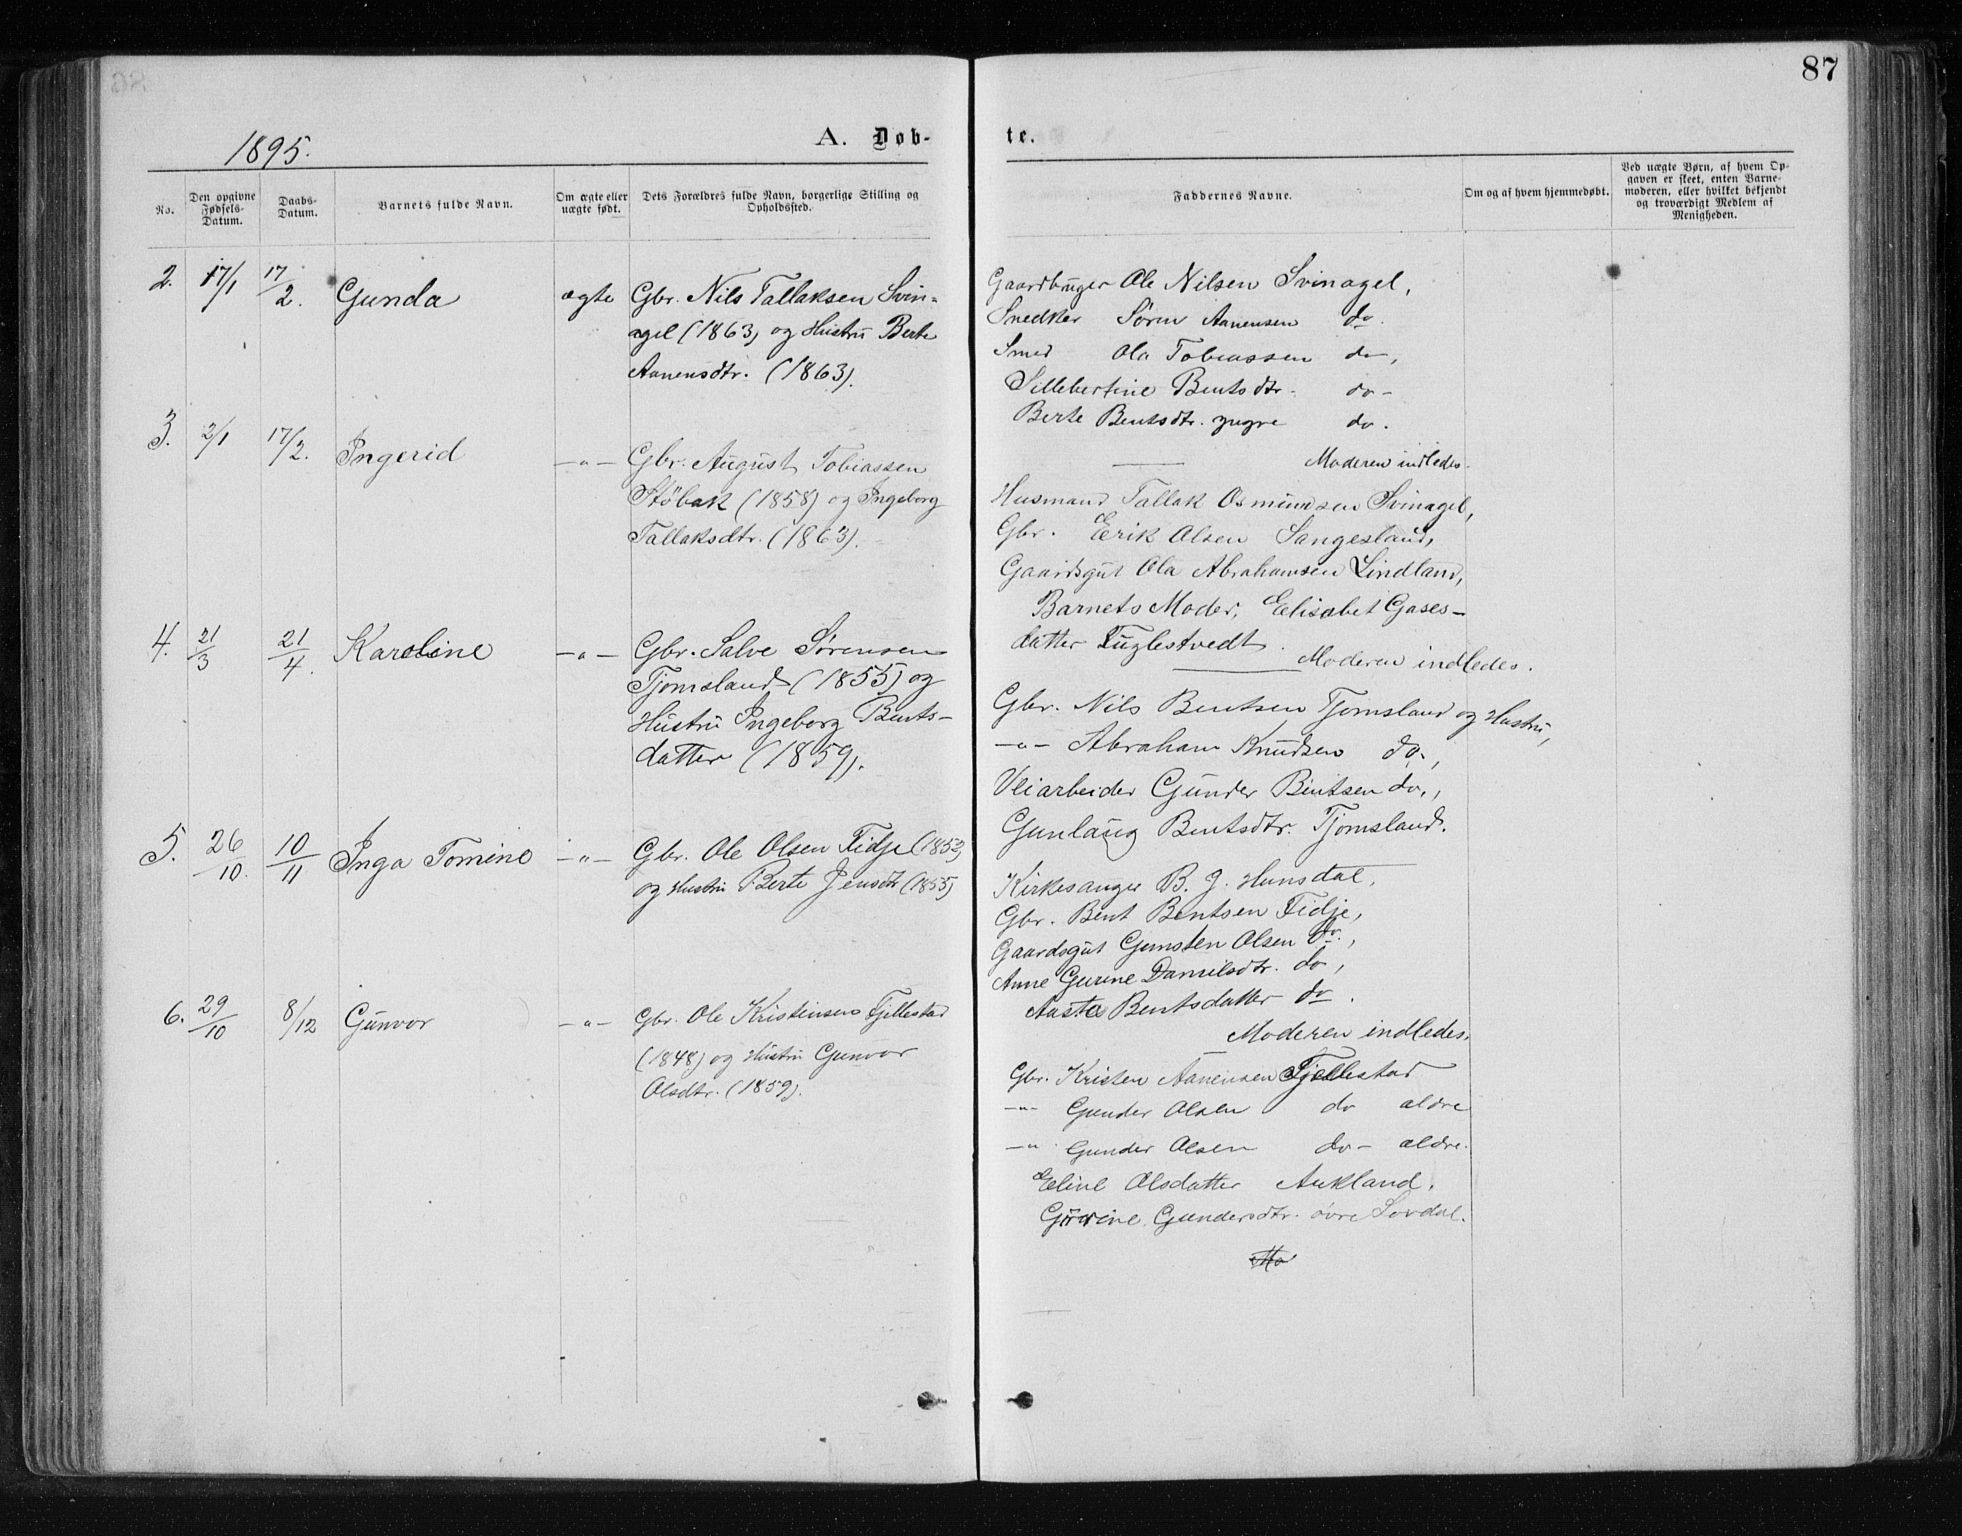 87
1895.
A. Døb-
te.
No.
Den opgivne
Fødsels-
Datum.
Daabs-
Datum.
Barnets fulde Navn.
Om ægte eller
uægte født.
Dets Forældres fulde Navn, borgerlige Stilling og
Opholdssted.
Faddernes Navne.
Om og af hvem hjemmedøbt.
Ved uægte Børn, af hvem Op-
gaven er skeet, enten Barne-
moderen, eller hvilket bekjendt
og troværdigt Medlem af
Menigheden.
2. 17/1 17/2. Gunda ægte Gbr. Nils Tallaksen Svin-
agel (1863) og Hustru Berte
Aanensdtr. (1863).
Gaardbruger Ole Nilsen Svinagel,
Snedker Søren Aanensen do.
Smed Ola Tobiassen do,
Sillebertine Bentsdtr. do-
Berte Bentsdtr. yngre do.
Moderen indledes.
3. 2/1 17/2. Ingerid -"- Gbr. August Tobiassen
Støbak (1858) og Ingeborg
Tallaksdtr. (1863).
Husmand Tallak Osmundsen Svinagel,
Gbr. Erik Olsen Sangesland,
Gaardsgut Ola Abrahamsen Lindland,
Barnets Moder, Elisabet Gases-
datter Fuglestvedt.
Moderen indledes.
4. 21/3 21/4. Karoline -"- Gbr. Salve Sørensen
Tjomsland (1855) og
Hustru Ingeborg Bents-
datter (1859).
Gbr. Nils Bentsen Tjomsland og Hustru,
-"- Abraham Knudsen do.,
Veiarbeider Gunder Bentsen do.,
Gunlaug Bentsdtr. Tjomsland.
5. 26/10. 10/11 Inga Tomine -"- Gbr. Ole Olsen Fidje (1853)
og Hustru Berte Jensdtr (1855)
Kirkesanger B. J. Hunsdal,
Gbr. Bent Bentsen Fidje,
Gaardsgut Gumsten Olsen do.,
Anne Gurine Danielsdtr. do,
Aaste Bentsdatter do.
Moderen indledes.
6. 29/10 8/12 Gunvor -"- Gbr. Ole Kristensen Fjellestad
(1848) og Hustru Gunvor
Olsdtr. (1859).
Gbr. Kristen Aanensen Fjellestad
-"- Gunder Olsen do ældre
-"- Gunder Olsen do- ældre.
Eline Olsdatter Aukland.
Gurine Gundersdtr. øvre Søvdal.
Mo